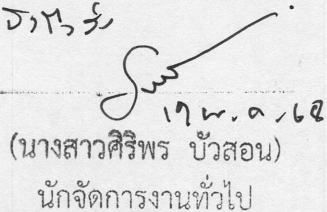 17 พ.ค. 62
(นางสาวศิริพร บัวสอน)
นักจัดการงานทั่วไป